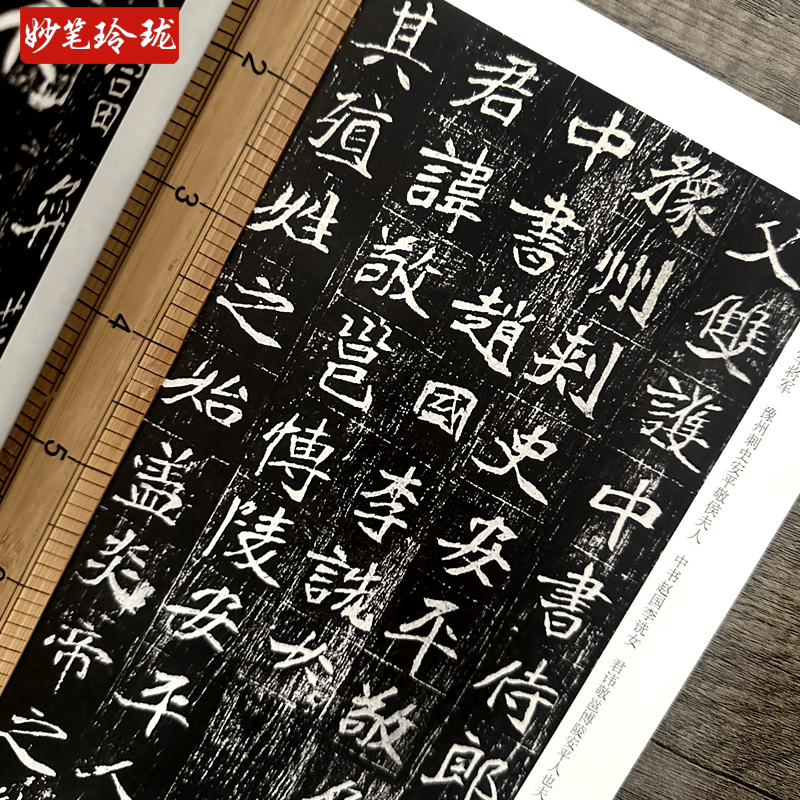 妙笔玲珑
父雙護中書侍郎
豫州刺史安平敬
中書趙國李詵女
君諱敬邕博陵安平人
其殖姓之始蓋炎帝之
将军 豫州刺史安平敬侯夫人 中书赵国李诜女 君讳敬邕博陵安平人也夫
2
3
4
5
6